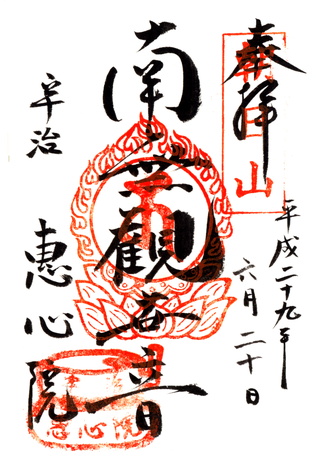 奉拝
平成二十九年
六月二十日
南無観世音
宇治
恵心院